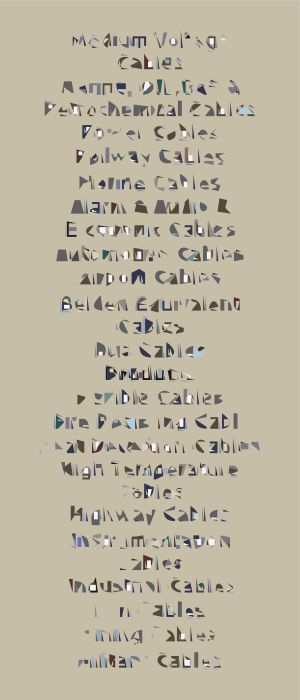 Medium Voltage
Cables
Marine, Oil, Gas &
Petrochemical Cables
Power Cables
Railway Cables
Marine Cables
Alarm & Audio
Electronic Cables
Automotive Cables
Airport Cables
Belden Equivalent
Cables
Bus Cables
Products
Flexible Cables
Fire Resisting
Heat Detection Cables
High Temperature
Cables
Highway Cables
Instrumentation
Cables
Industrial Cables
Cables
Mining Cables
Military Cables